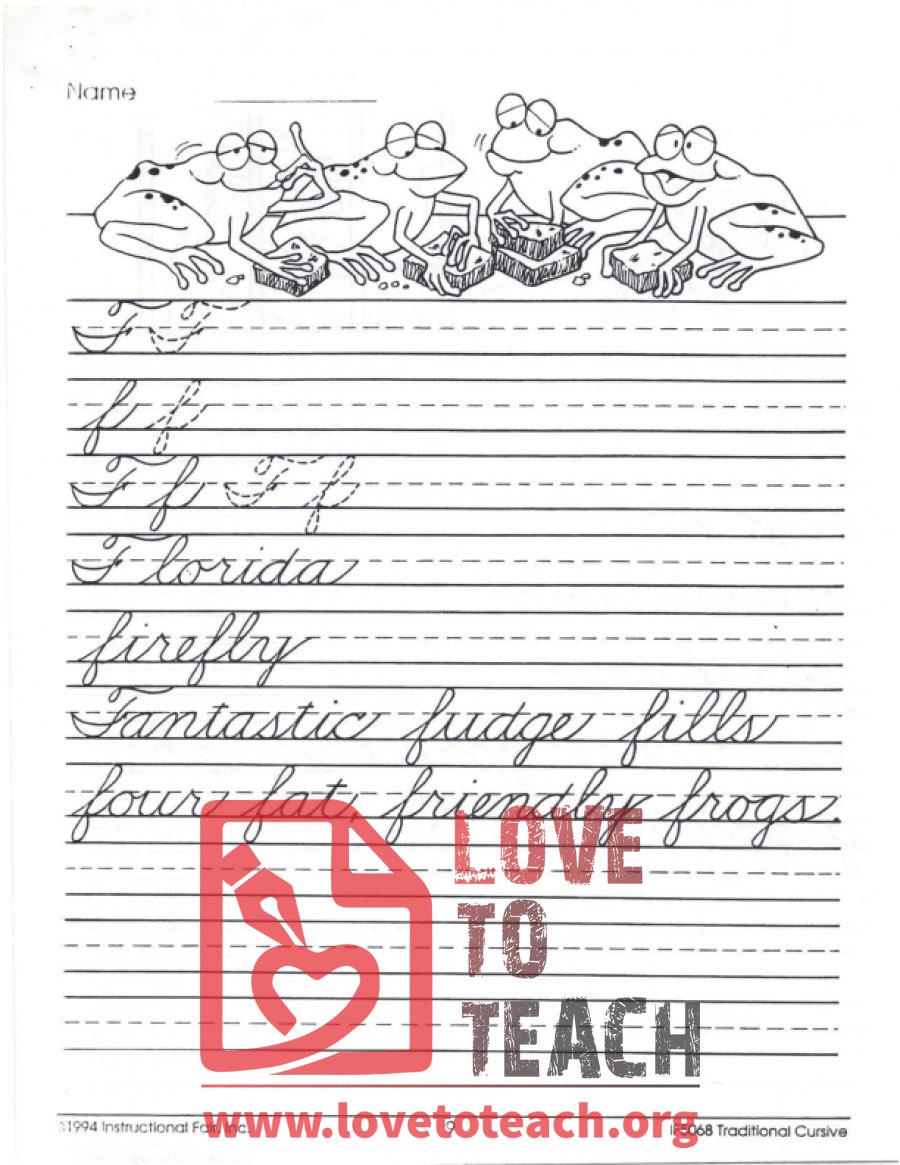 Name
F F
f f
F f F f
Florida
firefly
Fantastic fudge fills
four fat, friendly frogs.
LOVE
TO
TEACH
www.lovetoteach.org
©1994 Instructional Fair, Inc. 9 IF5068 Traditional Cursive